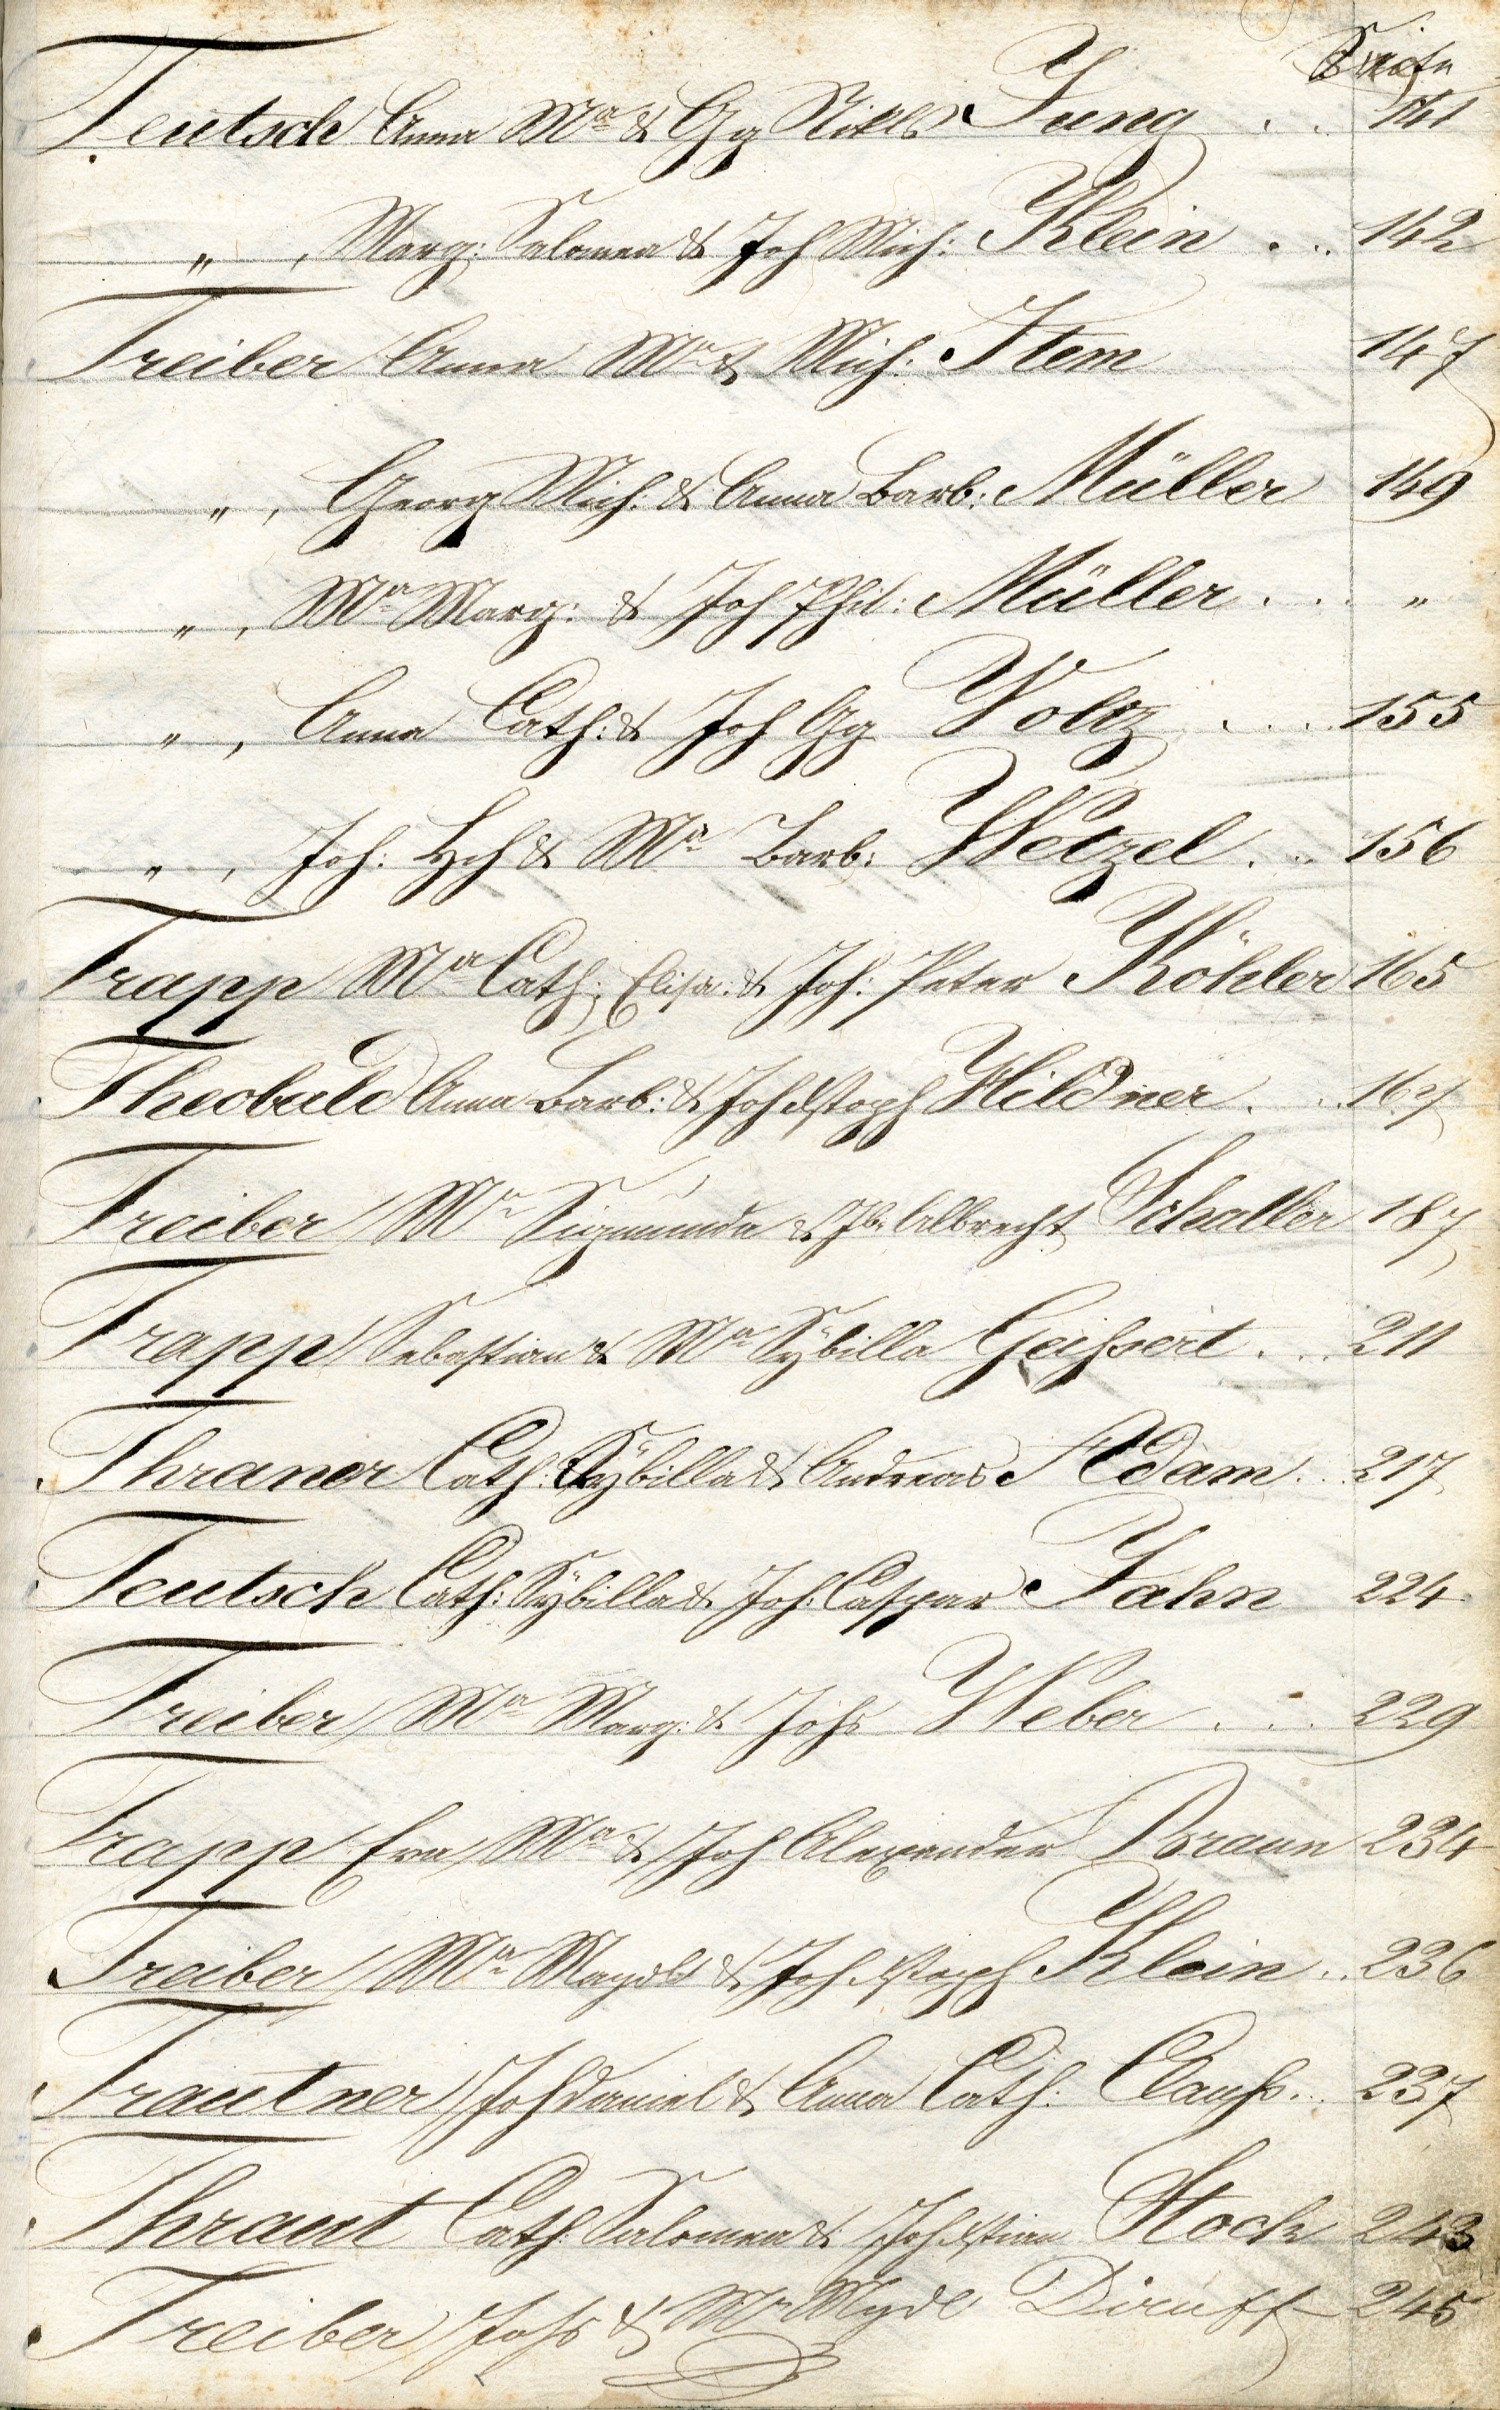 Seite
Teutsch Anna Ma & Gg Nikls Jung . . 141
" , Marg: Salomea & Joh Mich: Klein . . 142
Treiber Anna Ma & Mich: Item 147
" , Georg Mich: & Anna Barb: Müller 149
" , Ma Marg: & Joh Phil: Müller . . . "
" , Anna Cath: & Joh Gg Voltz . . . 155
" , Joh: Hch & Ma Barb: Wetzel . . 156
Trapp Ma Cath: Elisa: & Joh: Peter Köhler 165
Theobald Anna Barb: & Joh Xstoph Hildner . . 167
Treiber Ma Sigmunda & Jb. Albrecht Schaller 187
Trapp Sebastian & Ma Sÿbilla Geißert . . . 211
Thraner Cath: Sÿbilla & Andreas Adam . . 217
Teutsch Cath: Sÿbilla & Joh: Caspar Jahn 224
Treiber Ma Marg: & Johs Weber . . . 229
Trapp Eva Ma & Joh Alexander Braun 234
Treiber Ma Magdl & Joh Xstoph Klein . . 236
Trautner Joh Daniel & Anna Cath: Clauß . . 237
Thraut Cath Salomea & Joh Xstian Stock 243
Treiber Johs & Ma Mgdl Diruff 245